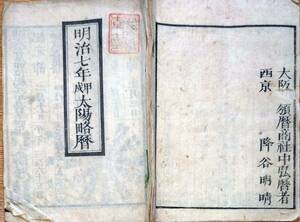 大阪
西京
頒暦商社中弘暦者
降谷明晴
明治七年甲戌太陽略暦